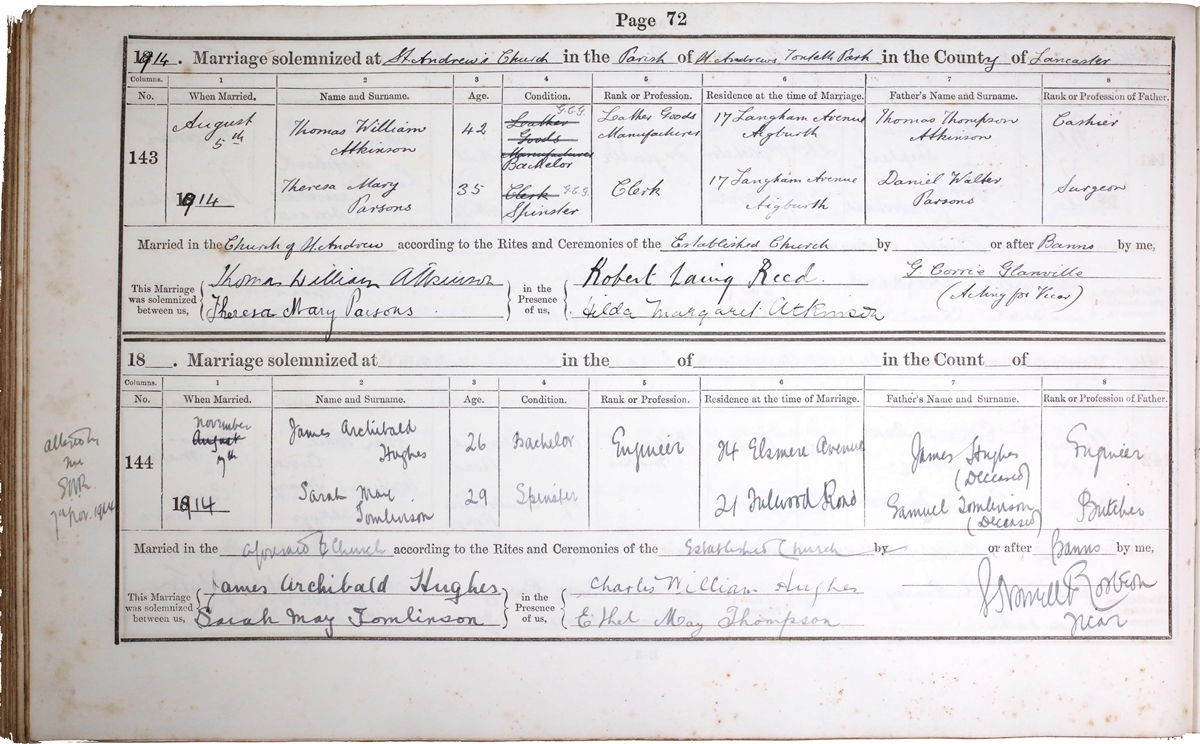 Page 72
1914. Marriage solemnized at St. Andrew's Church in the Parish of St. Andrews, Toxteth Park in the County of Lancaster
Columns. 1 2 3 4 5 6 7 8
No. When Married. Name and Surname. Age. Condition. Rank or Profession. Residence at the time of Marriage. Father's Name and Surname. Rank or Profession of Father.
143
August
5th
1914
Thomas William
Atkinson
42
G.C.G.
Leather
Goods
Manufacturer
Bachelor
Leather Goods
Manufacturer
17 Langham Avenue
Aigburth
Thomas Thompson
Atkinson
Cashier
Theresa Mary
Parsons
35
Clerk G.C.G.
Spinster
Clerk
17 Langham Avenue
Aigburth
Daniel Walter
Parsons
Surgeon
Married in the Church of St. Andrew according to the Rites and Ceremonies of the Established Church by or after Banns by me,
This Marriage
was solemnized
between us,
Thomas William Atkinson
Theresa Mary Parsons
in the
Presence
of us,
Robert Laing Reed.
Hilda Margaret Atkinson
G Corrie Glanville
(Acting for Vicar)
18 . Marriage solemnized at in the of in the Count of
Columns. 1 2 3 4 5 6 7 8
No. When Married. Name and Surname. Age. Condition. Rank or Profession. Residence at the time of Marriage. Father's Name and Surname. Rank or Profession of Father.
altered by
me
7 Nov. 1914
144
November
August
7th
1914
James Archibald
Hughes
26
Bachelor
Engineer
74 Elsmere Avenue
James Hughes
(Deceased)
Engineer
Sarah May
Tomlinson
29
Spinster
21 Fulwood Road
Samuel Tomlinson
(Deceased)
Butcher
Married in the aforesaid Church according to the Rites and Ceremonies of the Established Church by or after Banns by me,
This Marriage
was solemnized
between us,
James Archibald Hughes
Sarah May Tomlinson
in the
Presence
of us,
Charles William Hughes
Ethel May Thompson
Vicar